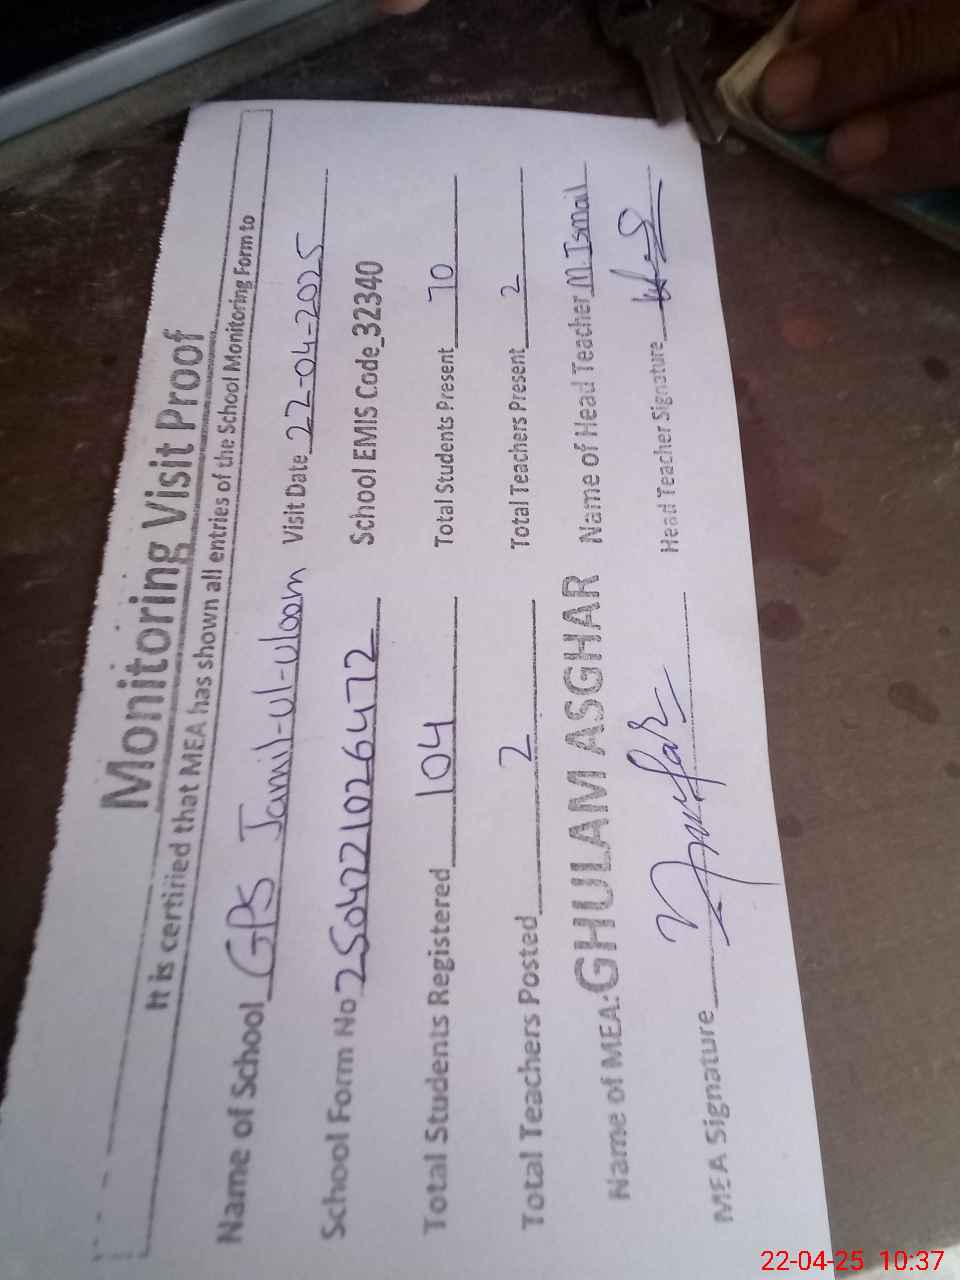 Monitoring Visit Proof
It is certified that MEA has shown all entries of the School Monitoring Form to
Name of School GPS Jamil-ul-uloom Visit Date 22-04-2025
School Form No 2504221026472 School EMIS Code_32340
Total Students Registered 104 Total Students Present 70
Total Teachers Posted 2 Total Teachers Present 2
Name of MEA: GHULAM ASGHAR Name of Head Teacher M. Ismail
MEA Signature Head Teacher Signature
22-04-25 10:37